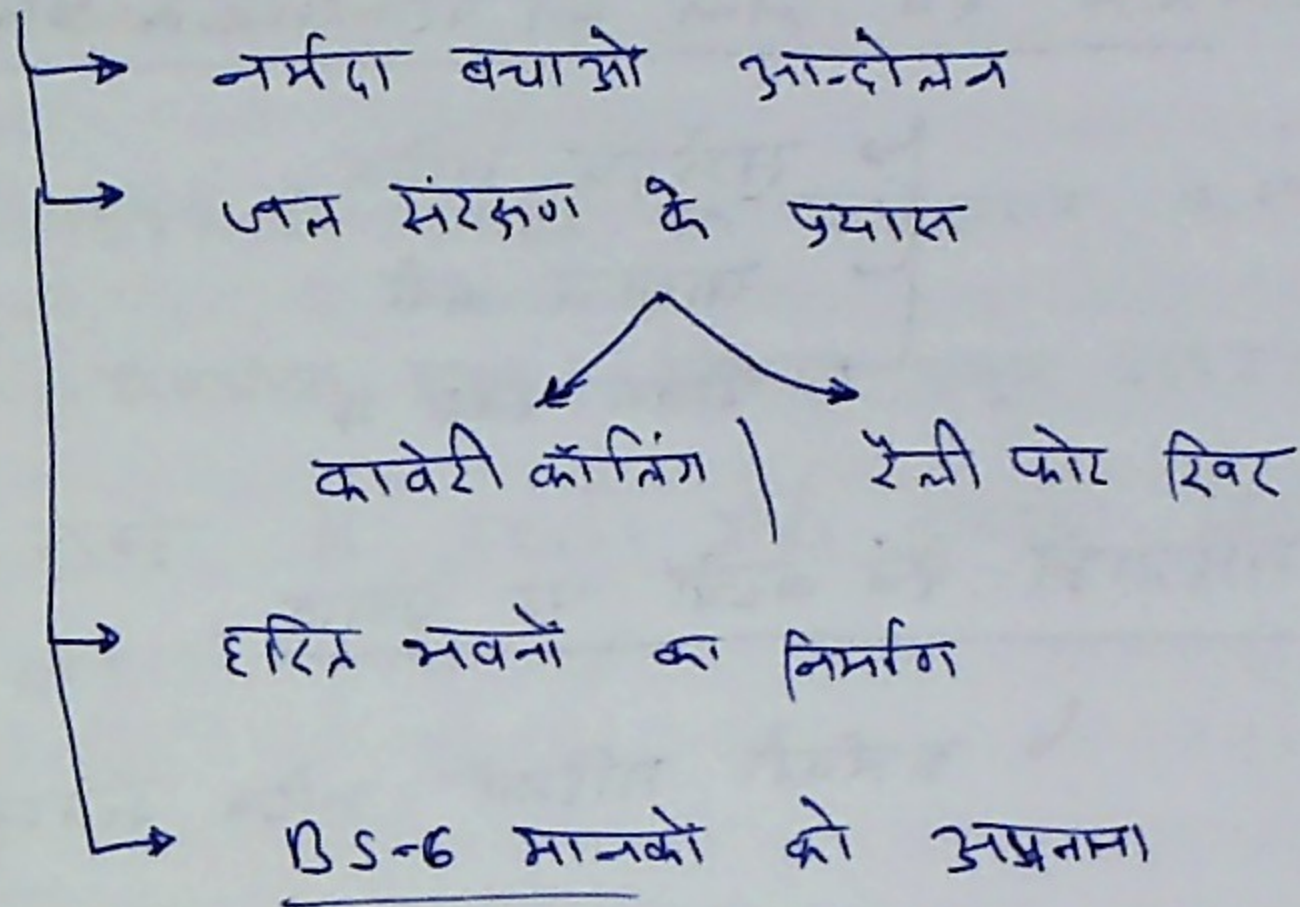 नर्मदा बचाओ आन्दोलन
जल संरक्षण के प्रयास
कावेरी कॉलिंग | रैली फोर रिवर
हरित भवनों का निर्माण
BS-6 मानकों को अपनाना